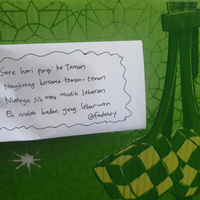 Sore hari pergi ke Taman
Nongkrong bersama teman-teman
Niatnya sih mau mudik lebaran
Eh malah badan yang lebaran